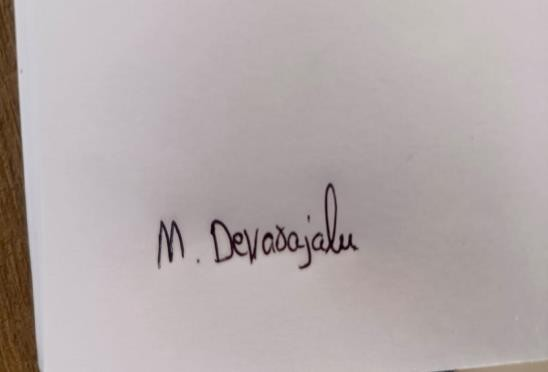 M. Devarajalu